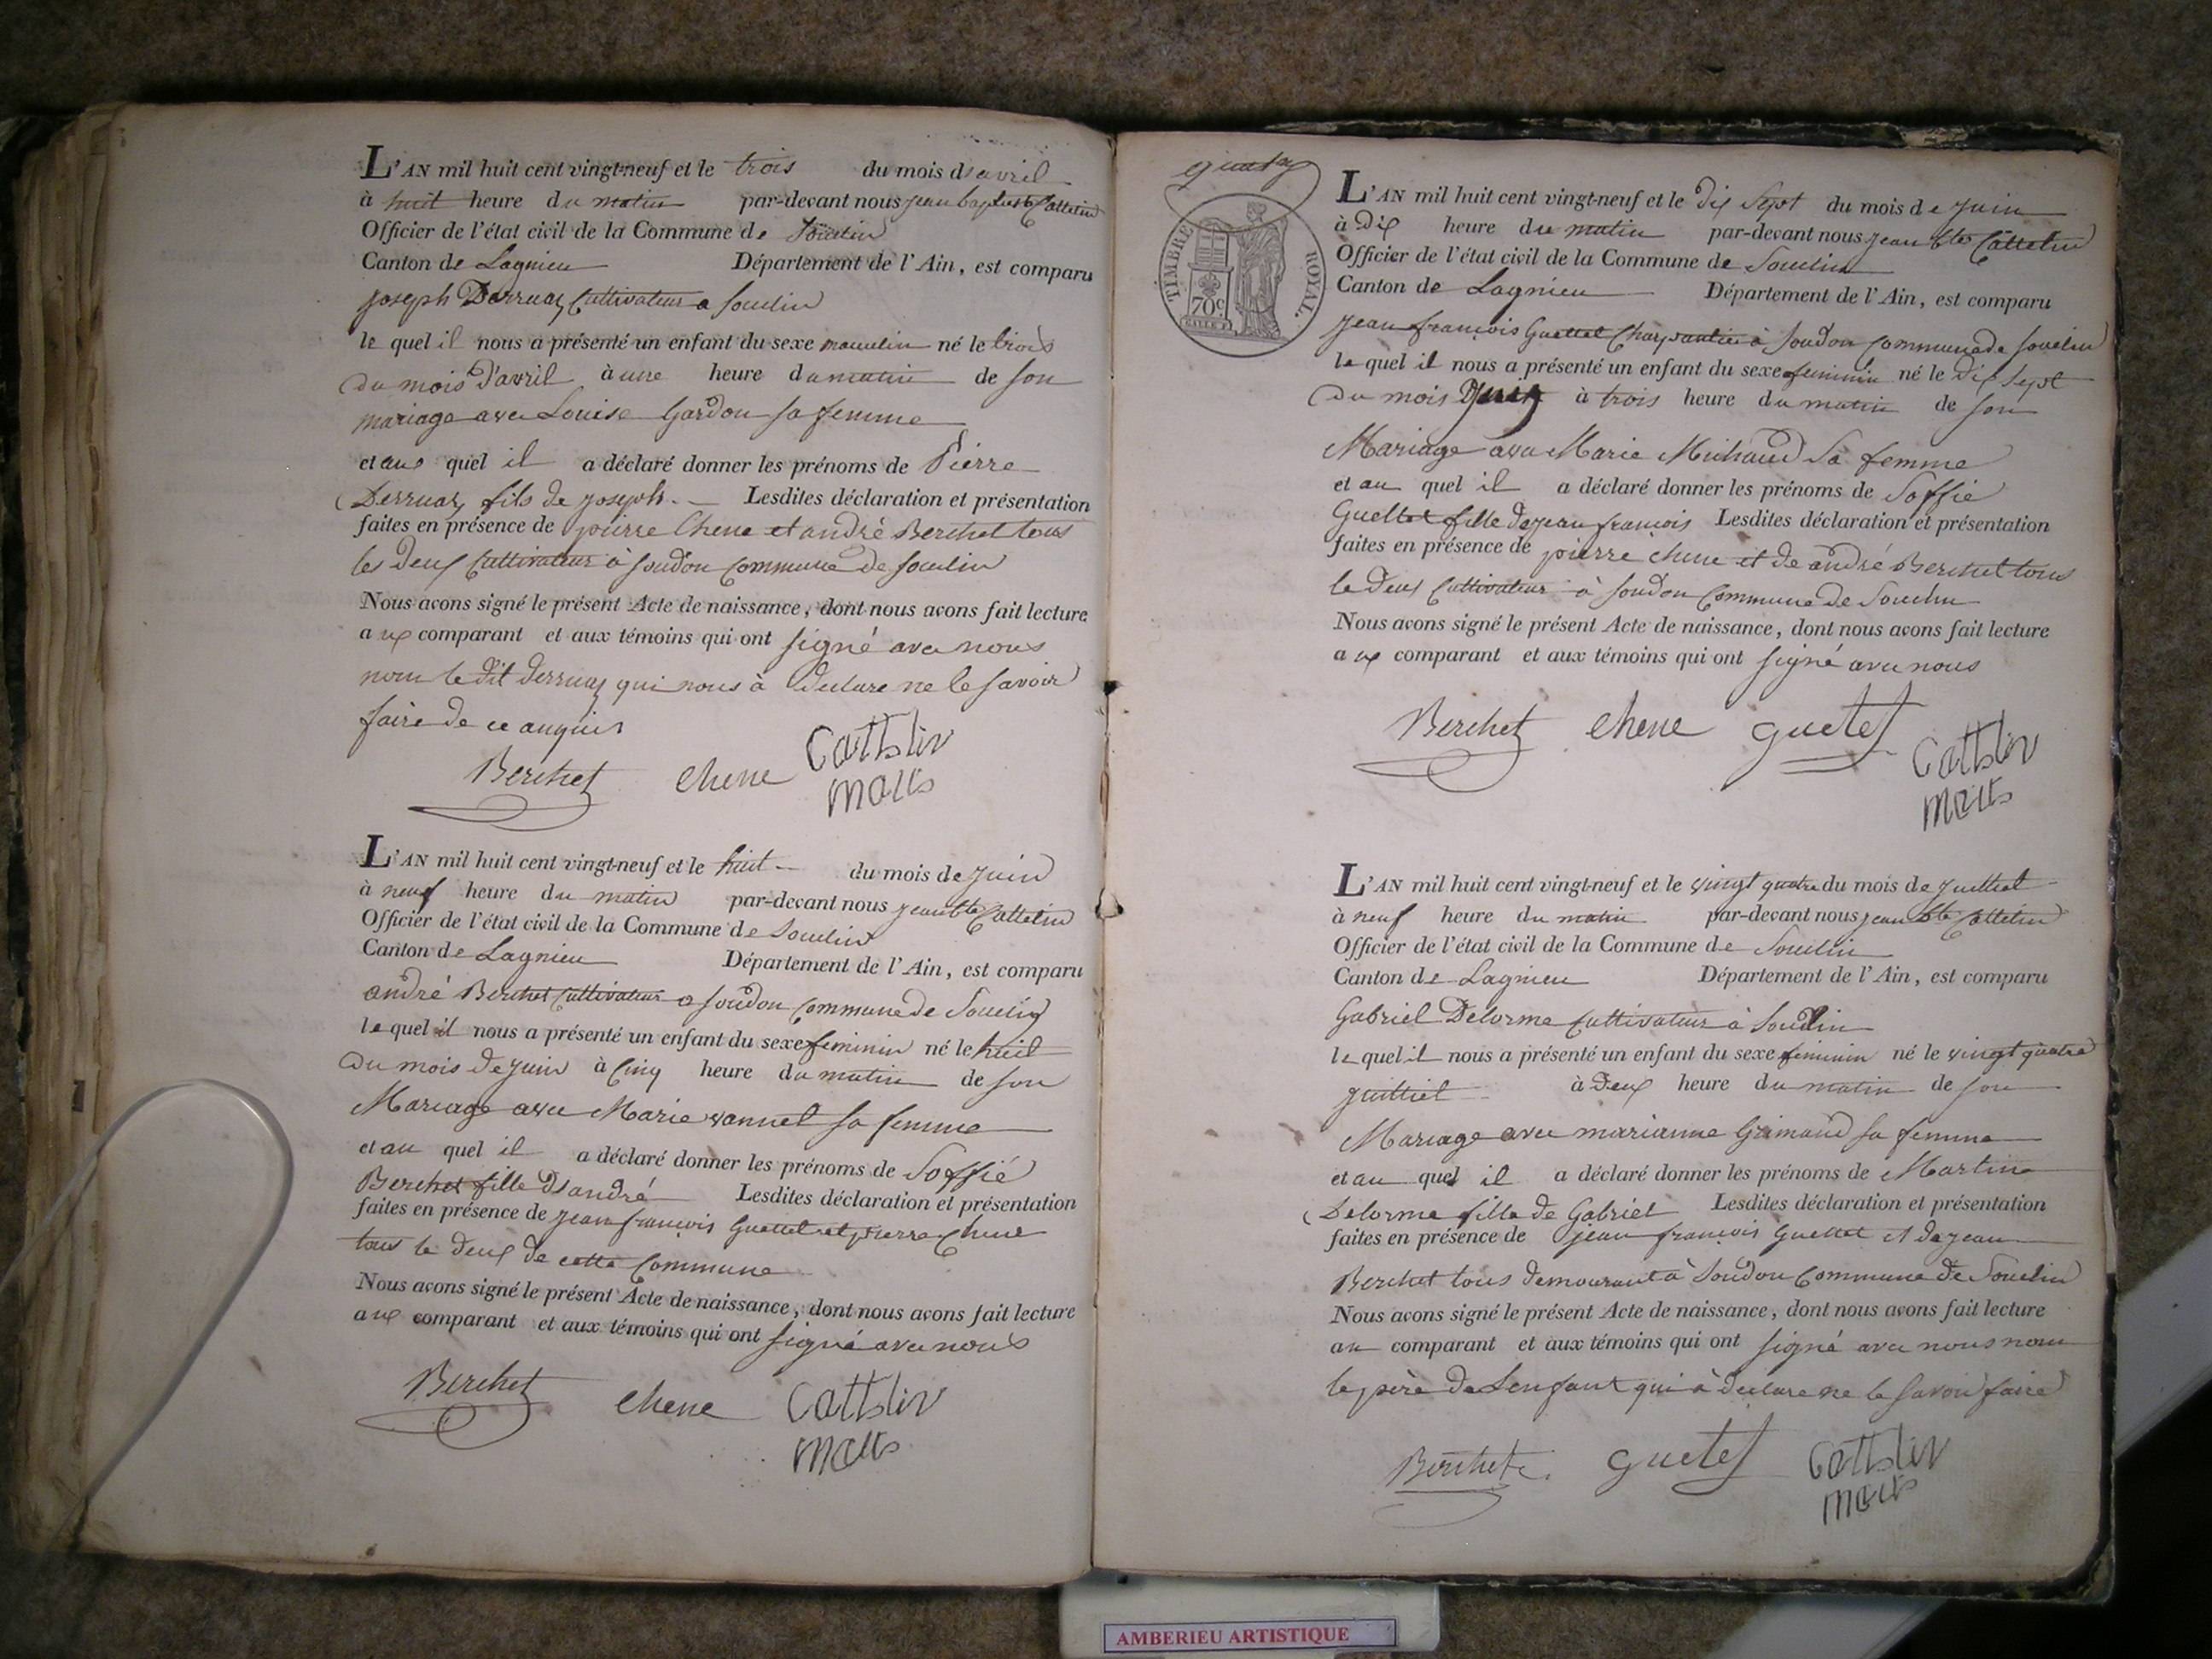 L'AN mil huit cent vingt-neuf et le trois du mois d'avril
à huit heure du matin par-devant nous jean baptiste Cattelin
Officier de l'état civil de la Commune de Souclin
Canton de Lagnieu Département de l'Ain, est comparu
joseph Derruaz Cultivateur a Souclin
le quel il nous a présenté un enfant du sexe masculin né le trois
du mois d'avril à une heure du matin de son
mariage avec Louise Gardon sa femme
et au quel il a déclaré donner les prénoms de Pierre
Derruaz fils de joseph. Lesdites déclaration et présentation
faites en présence de pierre Chene et andré Berchet tous
les deux Cultivateur à Soudon Commune de Souclin
Nous avons signé le présent Acte de naissance, dont nous avons fait lecture
aux comparant et aux témoins qui ont signé avec nous
non le dit Derruaz qui nous à declare ne le savoir
faire de ce enquis
Berchet Chene Cattelin
maire
L'AN mil huit cent vingt-neuf et le huit du mois de juin
à neuf heure du matin par-devant nous jean bte Cattelin
Officier de l'état civil de la Commune de Souclin
Canton de Lagnieu Département de l'Ain, est comparu
andré Berchet Cultivateur a Soudon Commune de Souclin
le quel il nous a présenté un enfant du sexe feminin né le huit
du mois de juin à Cinq heure du matin de son
Mariage avec Marie vannel sa femme
et au quel il a déclaré donner les prénoms de Soffié
Berchet fille d'andré Lesdites déclaration et présentation
faites en présence de jean françois Guettet et pierre Chene
tous le deux de cette Commune
Nous avons signé le présent Acte de naissance, dont nous avons fait lecture
aux comparant et aux témoins qui ont signé avec nous
Berchet Chene Cattelin
maire
TIMBRE ROYAL.
70c
L'AN mil huit cent vingt-neuf et le dix Sept du mois de juin
à Dix heure du matin par-devant nous jean bte Cattelin
Officier de l'état civil de la Commune de Souclin
Canton de Lagnieu Département de l'Ain, est comparu
jean françois Guettet Charpantier à Soudon Commune de Souclin
le quel il nous a présenté un enfant du sexe feminin né le Dix Sept
du mois Juin à trois heure du matin de son
Mariage avec Marie Michaud Sa femme
et au quel il a déclaré donner les prénoms de Soffié
Guettet fille de jean françois Lesdites déclaration et présentation
faites en présence de pierre chene et de andré Berchet tous
le deux Cultivateur à Soudon Commune de Souclin
Nous avons signé le présent Acte de naissance, dont nous avons fait lecture
aux comparant et aux témoins qui ont signé avec nous
Berchet Chene guetet
Cattelin
maire
L'AN mil huit cent vingt-neuf et le vingt quatre du mois de juilliet
à neuf heure du matin par-devant nous jean bte Cattelin
Officier de l'état civil de la Commune de Souclin
Canton de Lagnieu Département de l'Ain, est comparu
Gabriel Delorme Cultivateur à Souclin
le quel il nous a présenté un enfant du sexe feminin né le vingt quatre
juilliet à deux heure du matin de son
Mariage avec marianne Grimaud sa femme
et au quel il a déclaré donner les prénoms de Martine
Delorme fille de Gabriel Lesdites déclaration et présentation
faites en présence de jean françois Guettet et de jean
Berchet tous demeurant à Soudon Commune de Souclin
Nous avons signé le présent Acte de naissance, dont nous avons fait lecture
au comparant et aux témoins qui ont signé avec nous non
le père de Lenfant qui à declare ne le savoir faire
Berchet guetet Cattelin
maire
AMBERIEU ARTISTIQUE